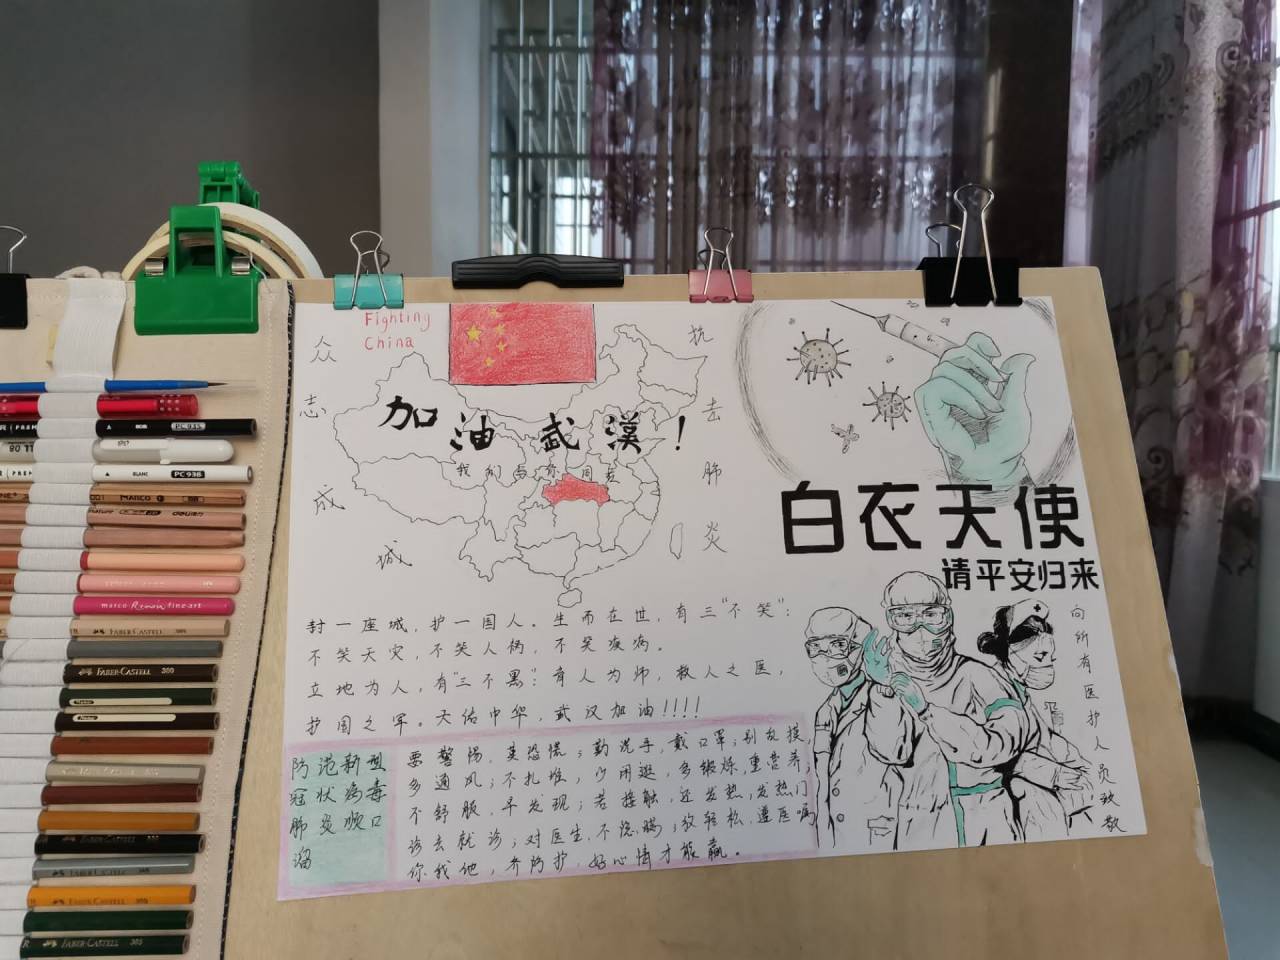 Fighting
China
众志成城
抗去肺炎
加油武漢!
我们与你同在
白衣天使
请平安归来
向所有医护人员致敬
封一座城,护一国人。生而在世,有三“不笑”:
不笑天灾,不笑人祸,不笑疾病。
立地为人,有“三不黑”:育人为师,救人之医,
护国之军。天佑中华,武汉加油!!!!
防范新型
冠状病毒
肺炎顺口
溜
要警惕,莫恐慌;勤洗手,戴口罩;别乱摸,
多通风;不扎堆,少闲逛,多锻炼,重营养,
不舒服,早发现;若接触,还发热,发热门
诊去就诊;对医生,不隐瞒;放轻松,遵医嘱
你我他,齐防护,好心情才能赢。
PC 935
BLANC
PC 938
MARCO
deli
marco Renoir fine art
FABER-CASTELL
FABER-CASTELL 300
FABER-CASTELL
FABER-CASTELL 305